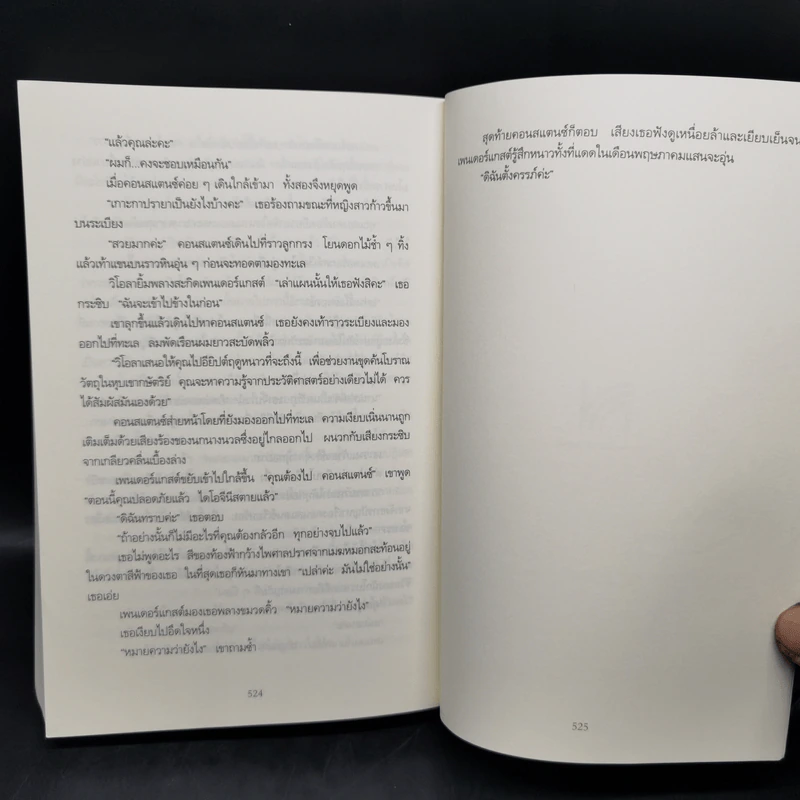 “แล้วคุณล่ะคะ”
“ผมก็...คงจะชอบเหมือนกัน”
เมื่อคอนสแตนซ์ค่อย ๆ เดินใกล้เข้ามา ทั้งสองจึงหยุดพูด
“เกาะกาปรายาเป็นยังไงบ้างคะ” เธอร้องถามขณะที่หญิงสาวก้าวขึ้นมา
บนระเบียง
“สวยมากค่ะ” คอนสแตนซ์เดินไปที่ราวลูกกรง โยนดอกไม้ช้ำ ๆ ทิ้ง
แล้วเท้าแขนบนราวหินอุ่น ๆ ก่อนจะทอดตามองทะเล
วิโอลายิ้มพลางสะกิดเพนเดอร์แกสต์ “เล่าแผนนั้นให้เธอฟังสิคะ” เธอ
กระซิบ “ฉันจะเข้าไปข้างในก่อน”
เขาลุกขึ้นแล้วเดินไปหาคอนสแตนซ์ เธอยังคงเท้าราวระเบียงและมอง
ออกไปที่ทะเล ลมพัดเรือนผมยาวสะบัดพลิ้ว
“วิโอลาเสนอให้คุณไปอียิปต์ฤดูหนาวที่จะถึงนี้ เพื่อช่วยงานขุดค้นโบราณ
วัตถุในหุบเขากษัตริย์ คุณจะหาความรู้จากประวัติศาสตร์อย่างเดียวไม่ได้ ควร
ได้สัมผัสมันเองด้วย”
คอนสแตนซ์ส่ายหน้าโดยที่ยังมองออกไปที่ทะเล ความเงียบเนิ่นนานถูก
เติมเต็มด้วยเสียงร้องของนกนางนวลซึ่งอยู่ไกลออกไป ผนวกกับเสียงกระซิบ
จากเกลียวคลื่นเบื้องล่าง
เพนเดอร์แกสต์ขยับเข้าไปใกล้ขึ้น “คุณต้องไป คอนสแตนซ์” เขาพูด
“ตอนนี้คุณปลอดภัยแล้ว ไดโอจีนีสตายแล้ว”
“ดิฉันทราบค่ะ” เธอตอบ
“ถ้าอย่างนั้นก็ไม่มีอะไรที่คุณต้องกลัวอีก ทุกอย่างจบไปแล้ว”
เธอไม่พูดอะไร สีของท้องฟ้ากว้างไพศาลปราศจากเมฆหมอกสะท้อนอยู่
ในดวงตาสีฟ้าของเธอ ในที่สุดเธอก็หันมาทางเขา “เปล่าค่ะ มันไม่ใช่อย่างนั้น”
เธอเอ่ย
เพนเดอร์แกสต์มองเธอพลางขมวดคิ้ว “หมายความว่ายังไง”
เธอเงียบไปอึดใจหนึ่ง
“หมายความว่ายังไง” เขาถามซ้ำ
524
สุดท้ายคอนสแตนซ์ก็ตอบ เสียงเธอฟังดูเหนื่อยล้าและเยียบเย็นจน
เพนเดอร์แกสต์รู้สึกหนาวทั้งที่แดดในเดือนพฤษภาคมแสนจะอุ่น
“ดิฉันตั้งครรภ์ค่ะ”
525